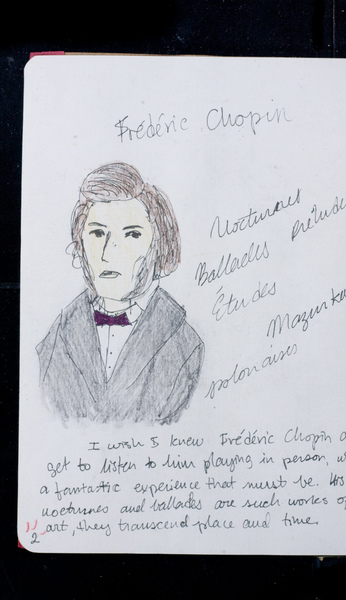 Frédéric Chopin
Nocturnes
Ballades Prélude
Études
Mazurka
polonaises
I wish I knew Frédéric Chopin a
get to listen to him playing in person, w
a fantastic experience that must be. His
nocturnes and ballades are such works of
art, they transcend place and time.
2